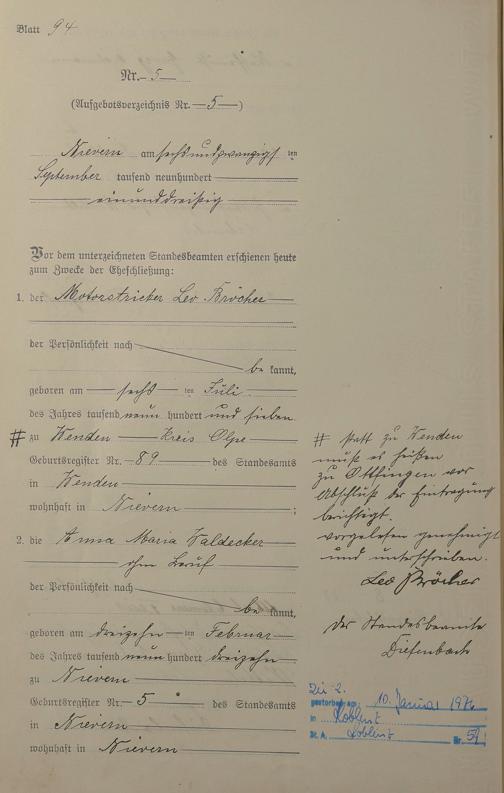 Blatt 94
Nr. 5
(Aufgebotsverzeichnis Nr. 5)
Nievern am sechsundzwanzigsten
September tausend neunhundert
einunddreißig
Vor dem unterzeichneten Standesbeamten erschienen heute
zum Zwecke der Eheschließung:
1. der Motorstricker Leo Bröcher
der Persönlichkeit nach
be kannt,
geboren am sechsten Juli
des Jahres tausend neun hundert und sieben
# zu Wenden Kreis Olpe
Geburtsregister Nr. 89 des Standesamts
in Wenden
wohnhaft in Nievern ;
2. die Anna Maria Waldecker
ohne Beruf
der Persönlichkeit nach
be kannt,
geboren am dreizehnten Februar
des Jahres tausend neun hundert dreizehn
zu Nievern
Geburtsregister Nr. 5 des Standesamts
in Nievern
wohnhaft in Nievern
# statt zu Wenden
muß es heißen
zu Ottfingen vor
Abschluß der Eintragung
berichtigt.
vorgelesen genehmigt
und unterschrieben.
Leo Bröcher
Der Standesbeamte
Diefenbach
Zu 2.
gestorben am: 10. Januar
in Koblenz
St. A. Koblenz Nr.